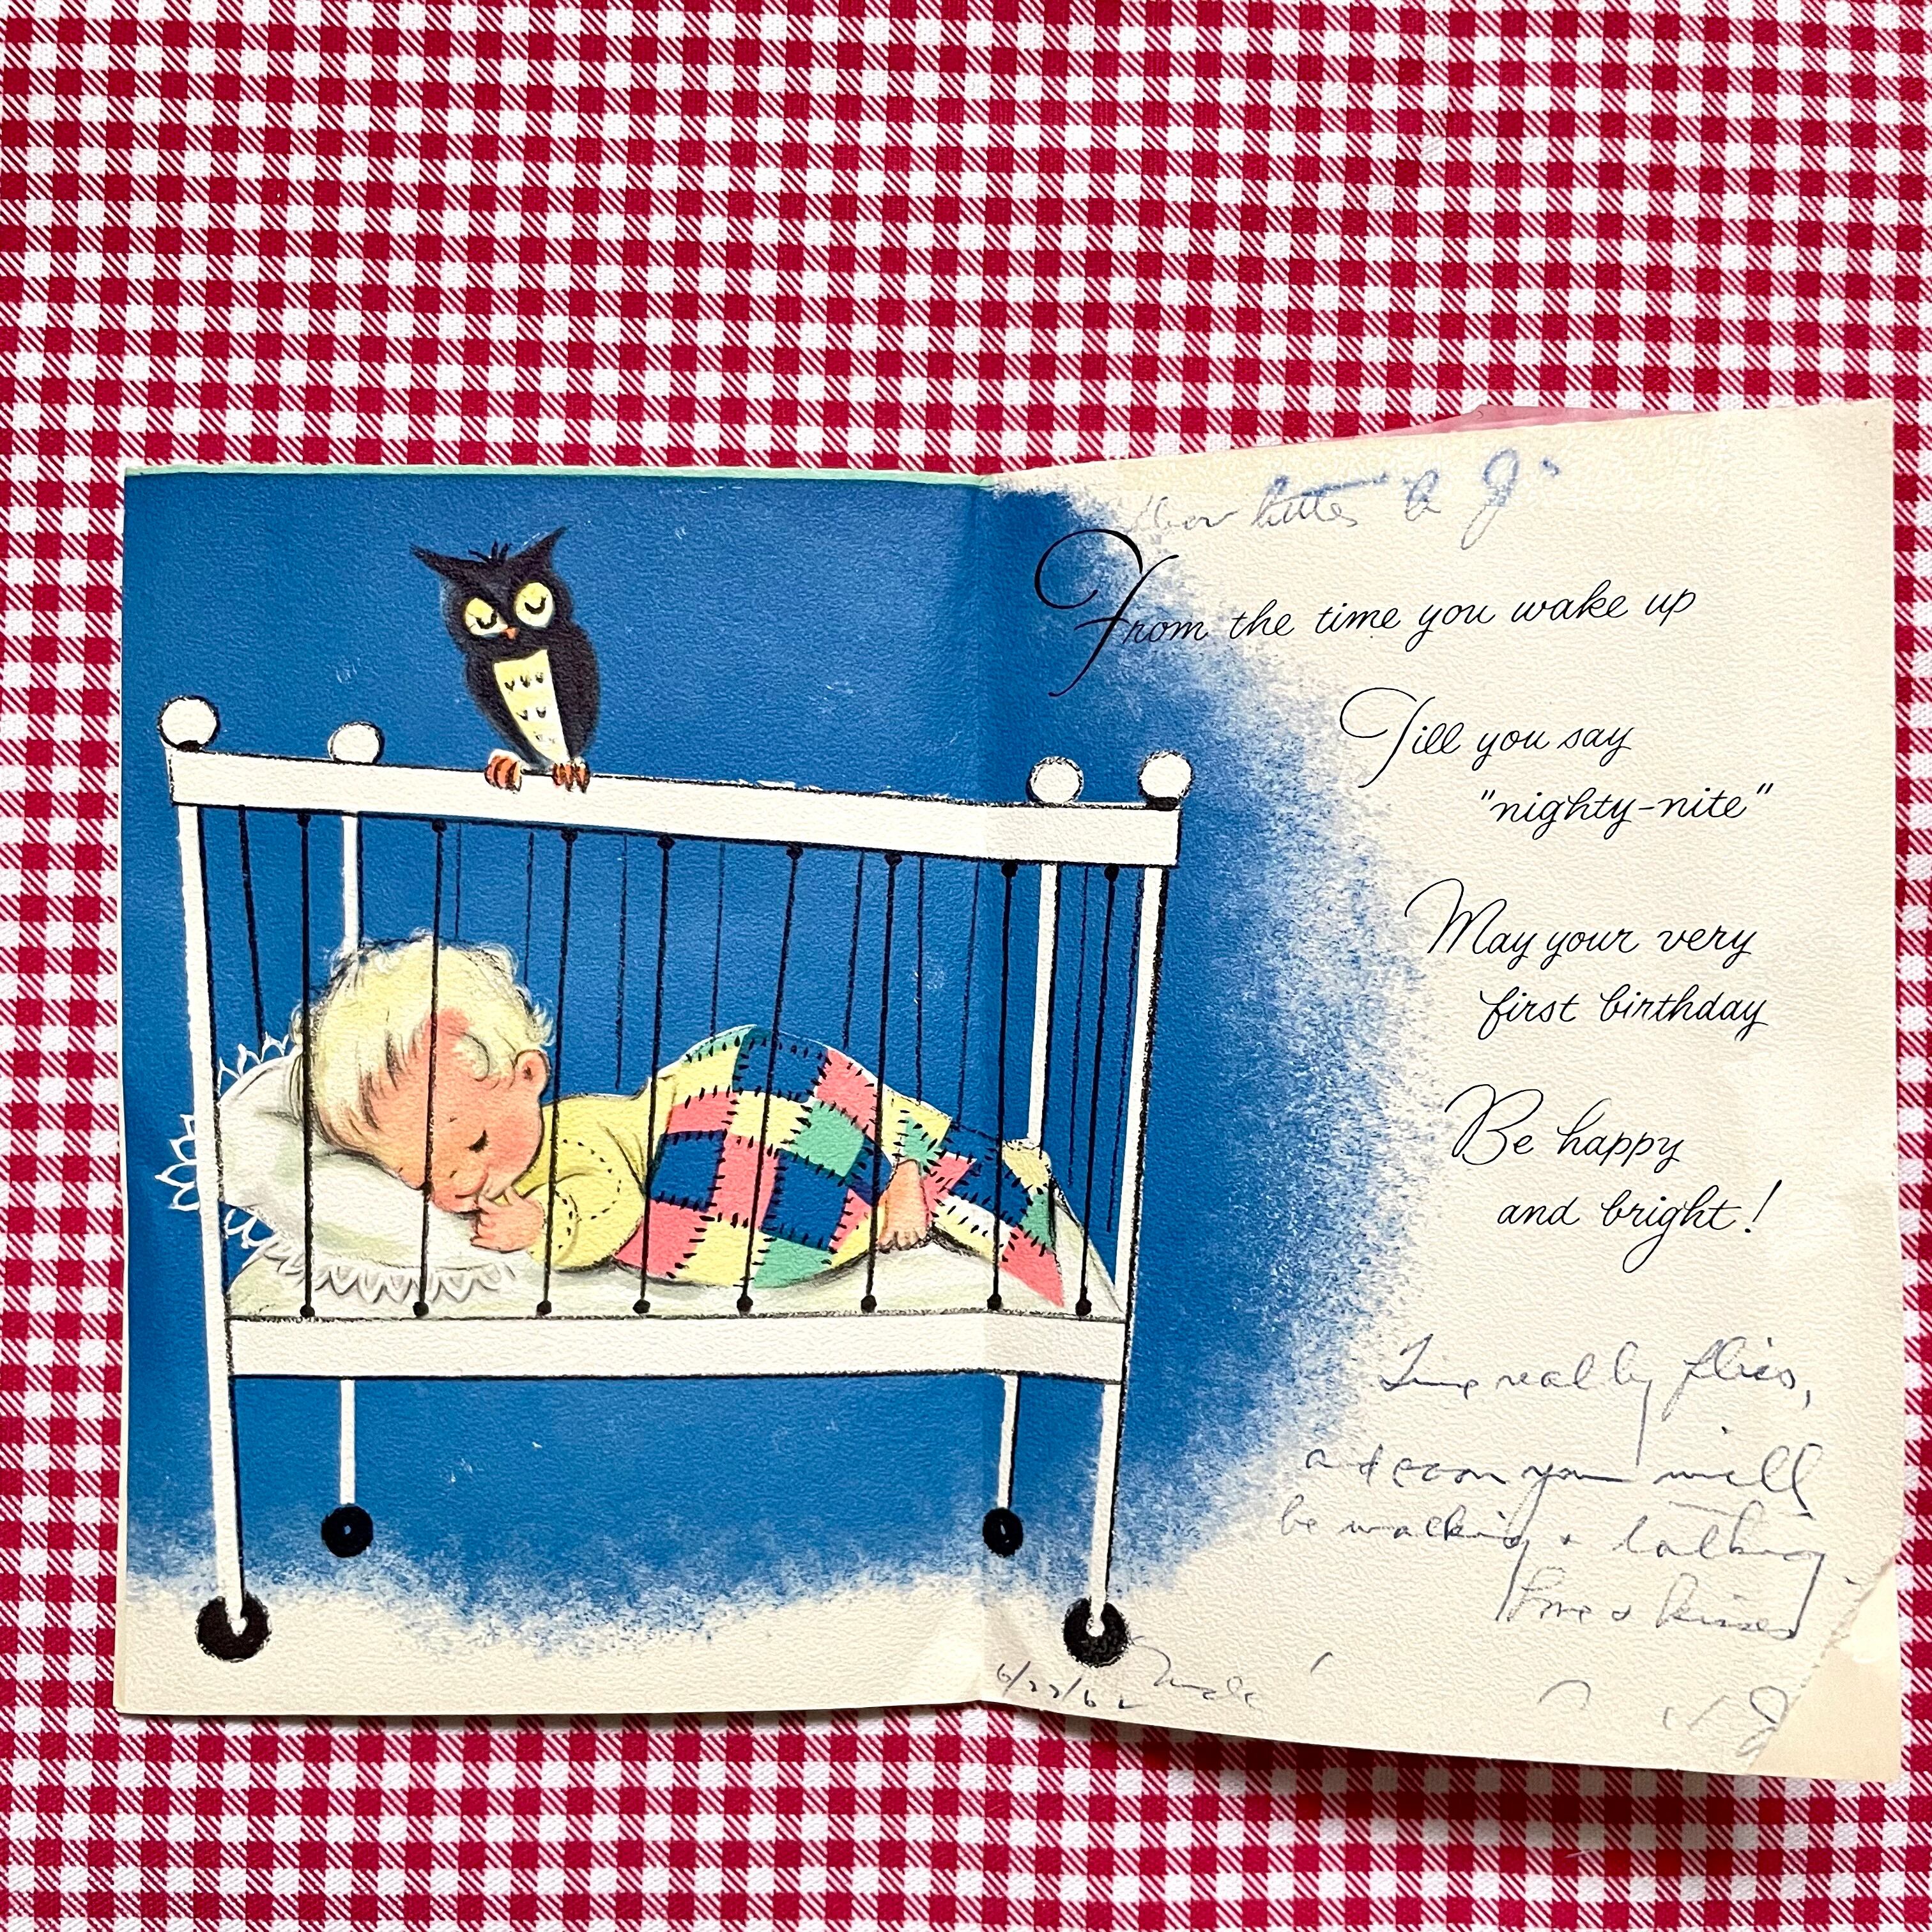 Dear little
From the time you wake up
Till you say
"nighty-nite"
May your very
first birthday
Be happy
and bright!
Time really flies,
and soon you will
be walking & talking
Love & kisses
6/22/62